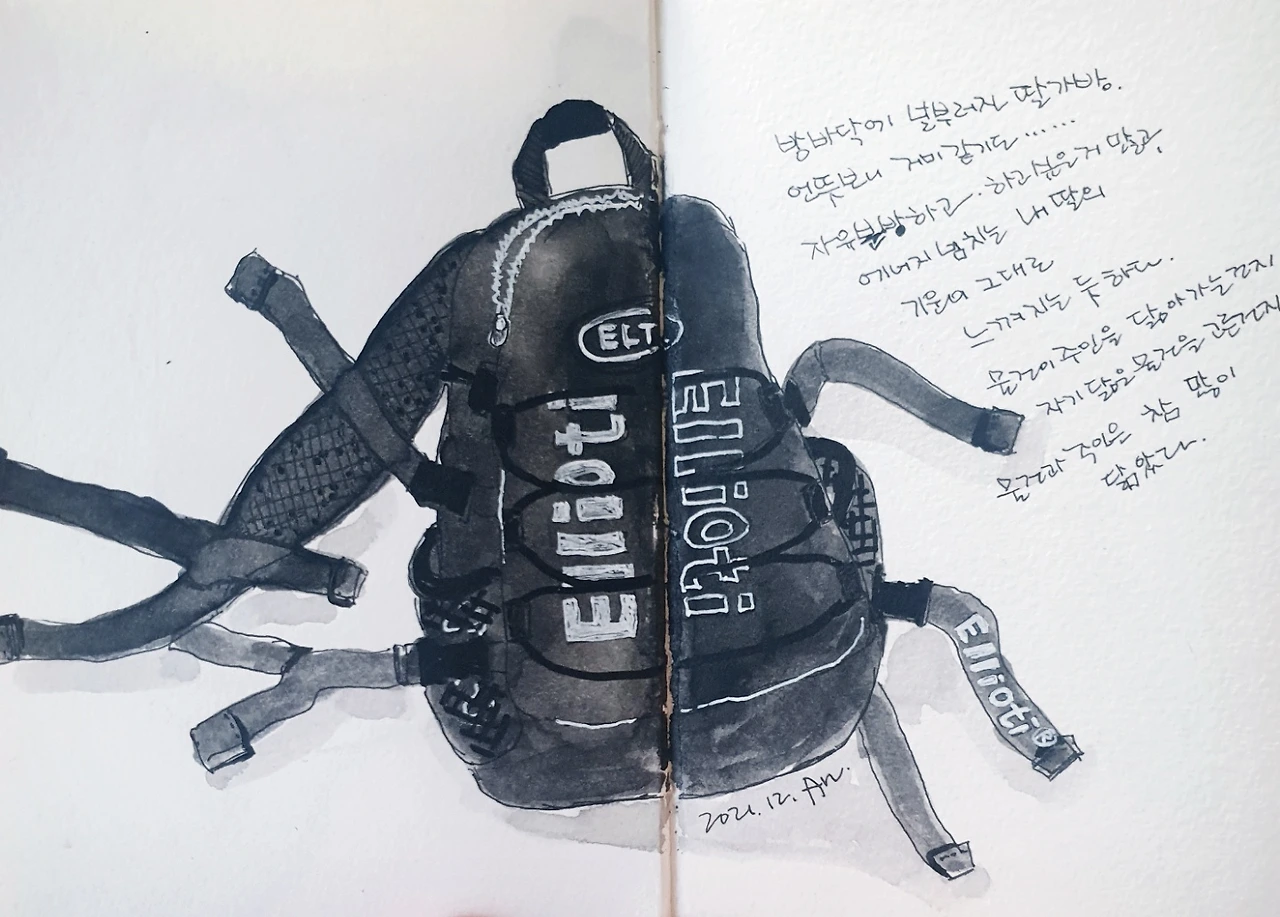 방바닥에 널부러진 딸가방.
언뜻보니 거미같기도......
자유분방하고·하리높은거 말고,
에너지 넘치는 내 딸의
기운이 그대로
느껴지는 듯 하다.
물건이 주인을 닮아가는건지
자기 닮은 물건을 고른건지
물건과 주인은 참 많이
닮았다.
ELT.
Ellioti
Ellioti
Ellioti®
2021.12. An.